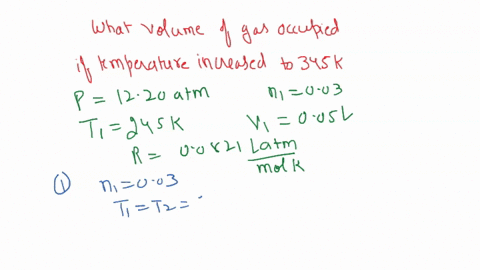 What volume of gas occupied
if tmperature increased to 345 K
P = 12.20 atm n₁ = 0.03
T₁ = 245 K V₁ = 0.05 L
R = 0.0821 L atm / mol K
① n₁ = 0.03
T₁ = T₂ =